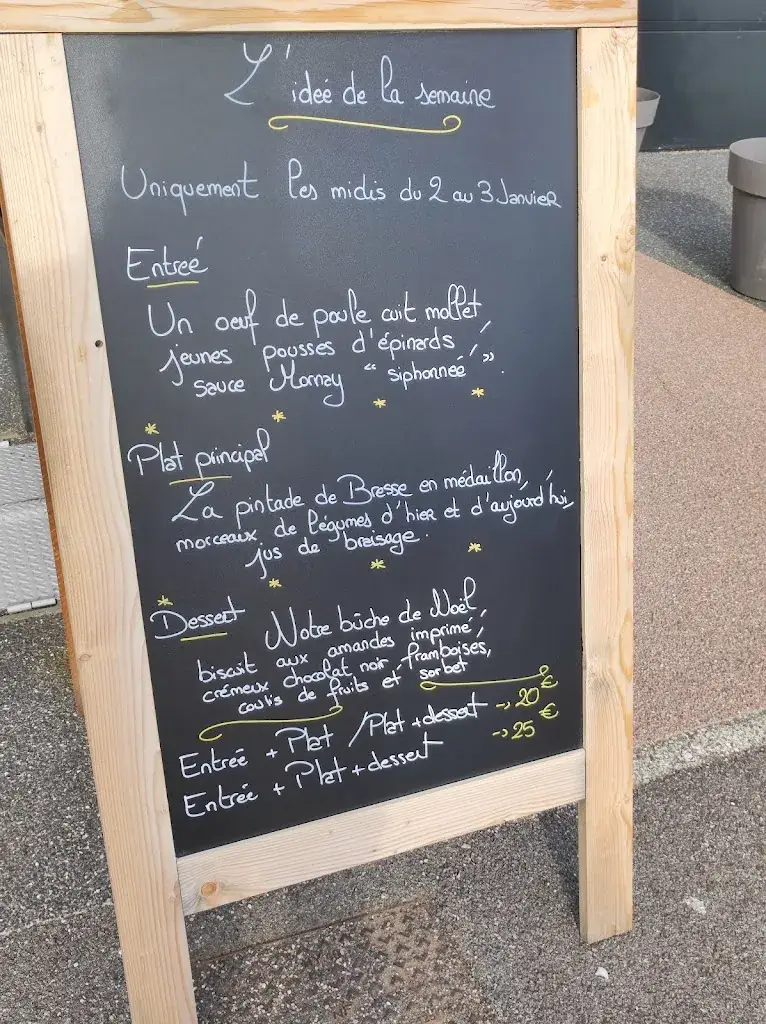 L'idée de la semaine
Uniquement les midis du 2 au 3 Janvier
Entreé
Un oeuf de poule cuit mollet,
jeunes pousses d'épinards,
sauce Mornay "siphonneé".
* * * *
Plat principal
La pintade de Bresse en médaillon,
morceaux de légumes d'hier et d'aujourd'hui,
jus de braisage.
* * * *
Dessert Notre bûche de Noël,
biscuit aux amandes imprimé,
crémeux chocolat noir, framboises,
coulis de fruits et sorbet
Entrée + Plat / Plat + dessert -> 20€
Entrée + Plat + dessert -> 25€